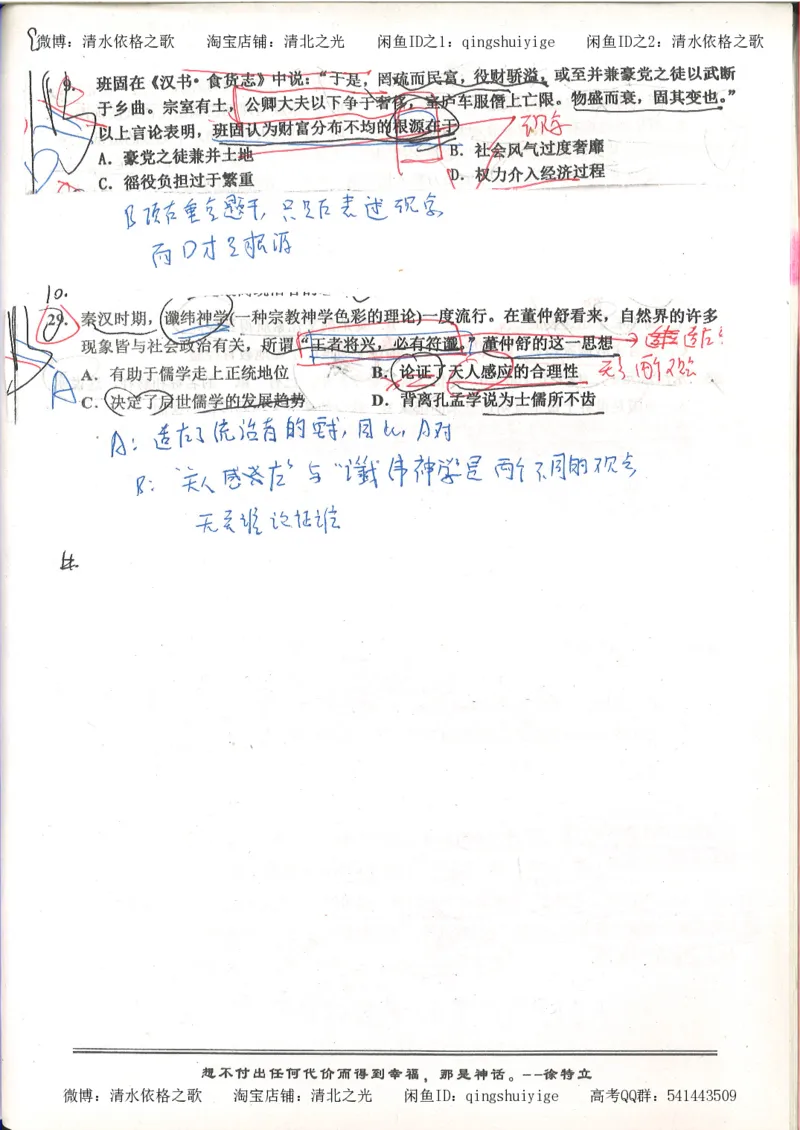 微博：清水依格之歌 淘宝店铺：清北之光 闲鱼ID之1：qingshuiyige 闲鱼ID之2：清水依格之歌
9. 班固在《汉书·食货志》中说：“于是，罔疏而民富，役财骄溢，或至并兼豪党之徒以武断
于乡曲。宗室有土，公卿大夫以下争于奢侈，室庐车服僭上亡限。物盛而衰，固其变也。”
以上言论表明，班固认为财富分布不均的根源在于
现象
A．豪党之徒兼并土地 B．社会风气过度奢靡
C．徭役负担过于繁重 D．权力介入经济过程
D
B项在重复题干，只是在表述现象
而D才是根源
10.
29. 秦汉时期，谶纬神学(一种宗教神学色彩的理论)一度流行。在董仲舒看来，自然界的许多
现象皆与社会政治有关，所谓“王者将兴，必有符谶。”董仲舒的这一思想
A．有助于儒学走上正统地位 B．论证了天人感应的合理性
C．决定了后世儒学的发展趋势 D．背离孔孟学说为士儒所不齿
A
A：适应了统治者的要求，因此，A对
B：“天人感应”与“谶纬神学是两个不同的观点
无关谁论证谁
想不付出任何代价而得到幸福，那是神话。--徐特立
微博：清水依格之歌 淘宝店铺：清北之光 闲鱼ID：qingshuiyige 高考QQ群：541443509